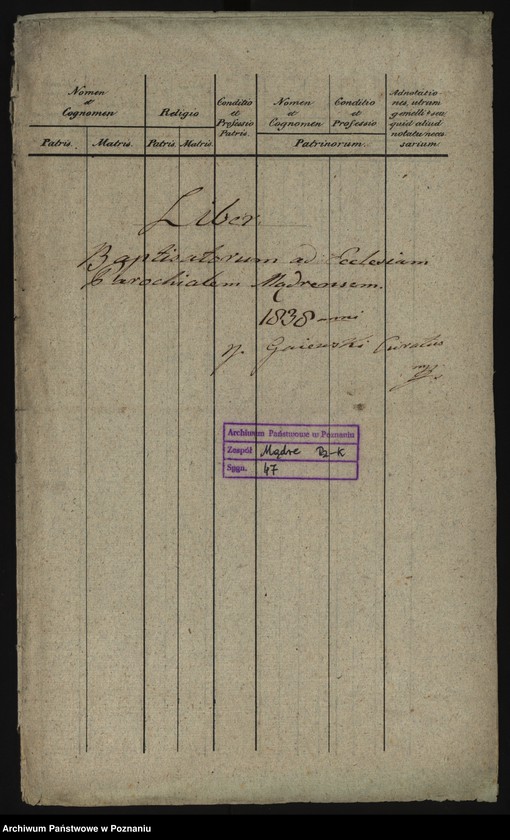 Nomen
et
Cognomen
Patris.
Matris.
Religio
Patris.
Matris
Conditio
et
Professio
Patris.
Nomen
et
Cognomen
Conditio
et
Professio
Patrinorum.
Adnotatio
nes, utrum
gemelli & seu
quid aliud
notatu neces
sarium
Liber
Baptisatorum ad Ecclesiam
Parochialem Mądrensem.
1838 anni
Gaiewski Curatus
Archiwum Państwowe w Poznaniu
Zespół Mądre Rz-K
Sygn. 47
Archiwum Państwowe w Poznaniu